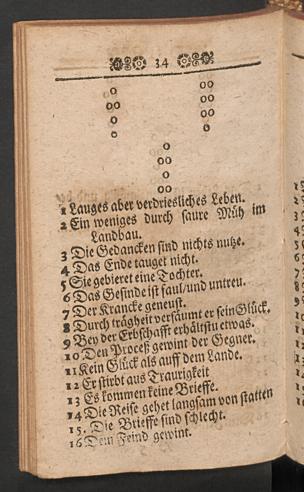 34
o oo
oo oo
o o
o o
o
oo
o
oo
1 Langes aber verdriesliches Leben.
2 Ein weniges durch saure Müh im
Landbau.
3 Die Gedancken sind nichts nutze.
4 Das Ende tauget nicht.
5 Sie gebieret eine Tochter.
6 Das Gesinde ist faul/und untreu.
7 Der Krancke geneust.
8 Durch trägheit versäumt er sein Glück.
9 Bey der Erbschafft erhältstu etwas.
10 Den Proceß gewint der Gegner.
11 Kein Glück als auff dem Lande.
12 Er stirbt aus Traurigkeit
13 Es kommen keine Brieffe.
14 Die Reise gehet langsam von statten
15. Die Brieffe sind schlecht.
16 Dem Feind gewint.